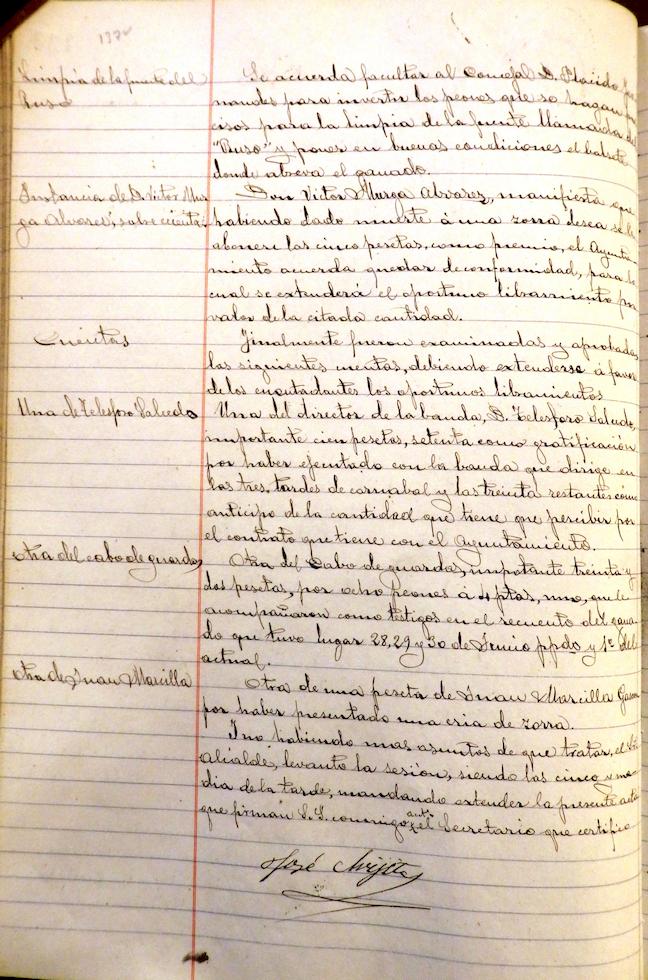 Limpia de la fuente del
Ruso
Se acuerda facultar al Concejal D. Placido
nandes para invertir los peones que se hagan
cisos para la limpia de la fuente llamada del
"Ruso" y poner en buenas condiciones el
donde abreva el ganado.
Instancia de D. Victor Mur
ga Alvarez, sobre
Don Victor Murga Alvarez, manifiesta que
habiendo dado muerte á una zorra desea se le
abonen las cinco pesetas, como premio, el Ayunta
miento acuerda quedar de conformidad, para lo
cual se extenderá el oportuno libramiento por
valor de la citada cantidad.
Cuentas
Finalmente fueron examinadas y aprobadas
las siguientes cuentas, debiendo extenderse á favor
de los cuentadantes los oportunos libramientos
Una de Telesforo Salcedo
Una del director de la banda, D. Telesforo Salcedo,
importante cien pesetas, setenta como gratificación
por haber ejecutado con la banda que dirige en
las tres tardes de carnabal y las treinta restantes como
anticipo de la cantidad que tiene que percibir por
el contrato que tiene con el Ayuntamiento.
Otra del cabo de guardas
Otra del Cabo de guardas, importante treinta y
dos pesetas, por ocho peones á 4 ptas, uno, que le
acompañaron como testigos en el recuento del gana
do que tuvo lugar 28, 29 y 30 de Junio ppdo y 1º del
actual.
Otra de Juan Marcilla
Otra de una peseta de Juan Marcilla
por haber presentado una cria de zorra.
I no habiendo mas asuntos de que tratar, el Sr
Alcalde, levanto la sesión, siendo las cinco y me
dia de la tarde, mandando extender la presente acta
que firman S. S. conmigo el Secretario que certifico
José